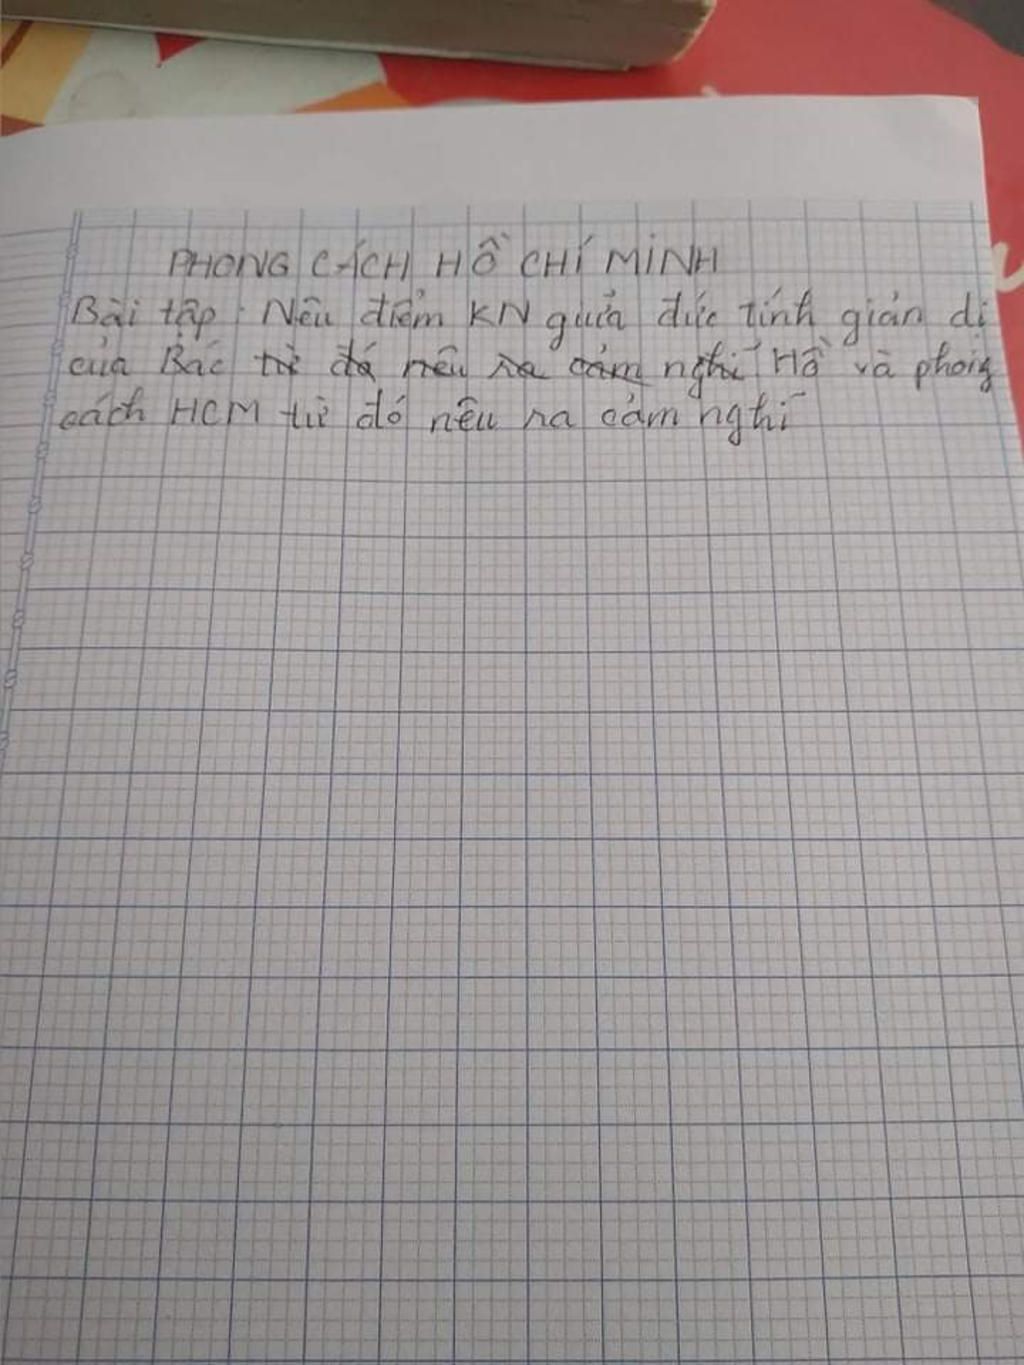 PHONG CÁCH HỒ CHÍ MINH
Bài tập: Nêu điểm KN giưã đức tính giản dị
của Bác từ đó nêu ra cảm nghĩ Hồ và phong
cách HCM từ đó nêu ra cảm nghĩ